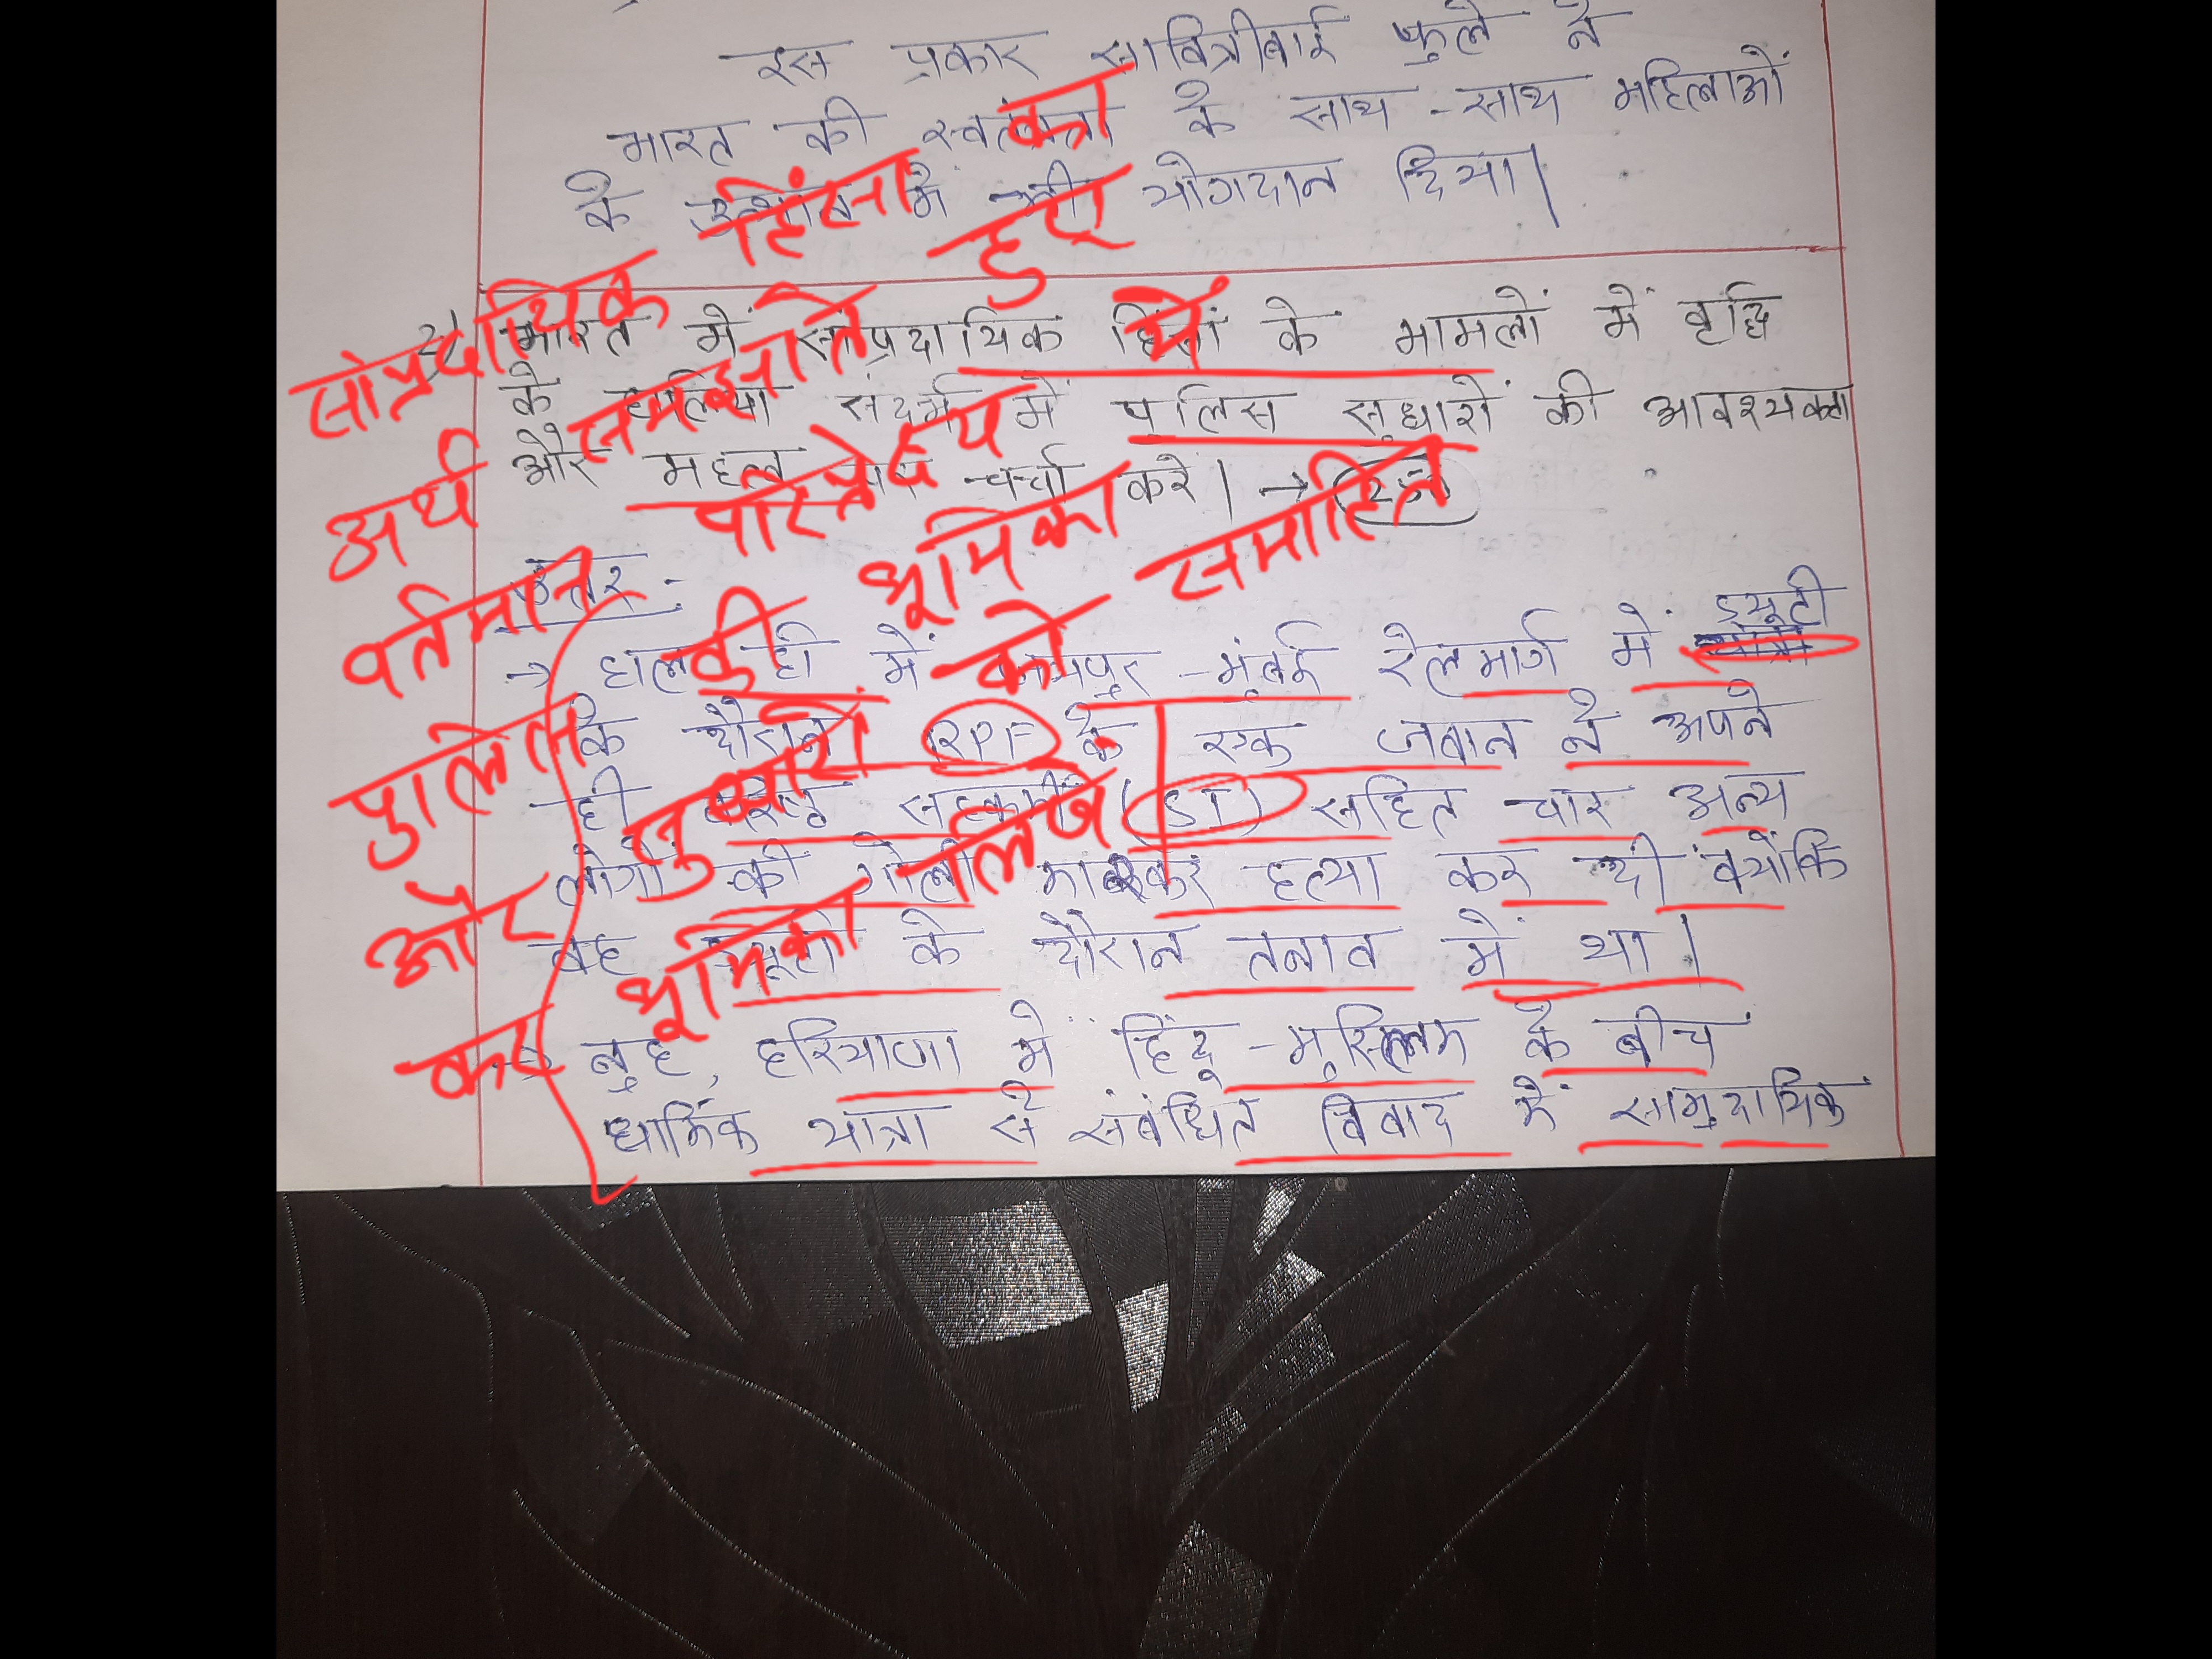 इस प्रकार सावित्रीबाई फुले ने
भारत की स्वतंत्रता के साथ-साथ महिलाओं
के उत्थान में भी योगदान दिया।
2) भारत में सांप्रदायिक हिंसा के मामलों में वृद्धि
के हालिया संदर्भ में पुलिस सुधारों की आवश्यकता
और महत्व पर चर्चा करे। →
उत्तर:-
→ हाल ही में जयपुर-मुंबई रेलमार्ग में ड्यूटी
के दौरान RPF के एक जवान ने अपने
ही वरिष्ठ सहकर्मी (SI) सहित चार अन्य
लोगों की गोली मारकर हत्या कर दी क्योंकि
वह ड्यूटी के दौरान तनाव में था।
→ नुह, हरियाणा में हिंदू-मुस्लिम के बीच
धार्मिक यात्रा से संबंधित विवाद में सामुदायिक
सांप्रदायिक हिंसा का
अर्थ समझाते हुए
वर्तमान परिप्रेक्ष्य में
पुलिस की भूमिका
और सुधारों को समाहित
कर भूमिका लिखें।